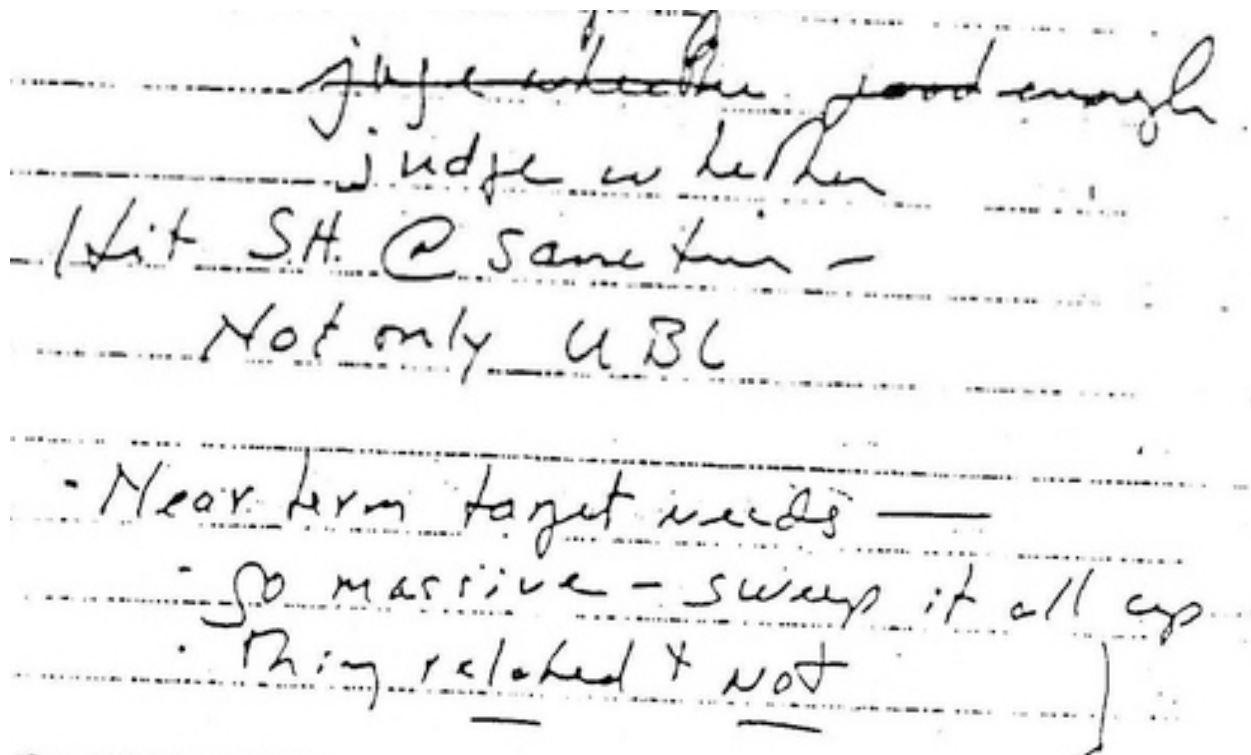 judge whether good enough
judge whether
Hit S.H. @ same time –
Not only UBL
· Near term target needs —
· go massive – sweep it all up
· Thing related + not